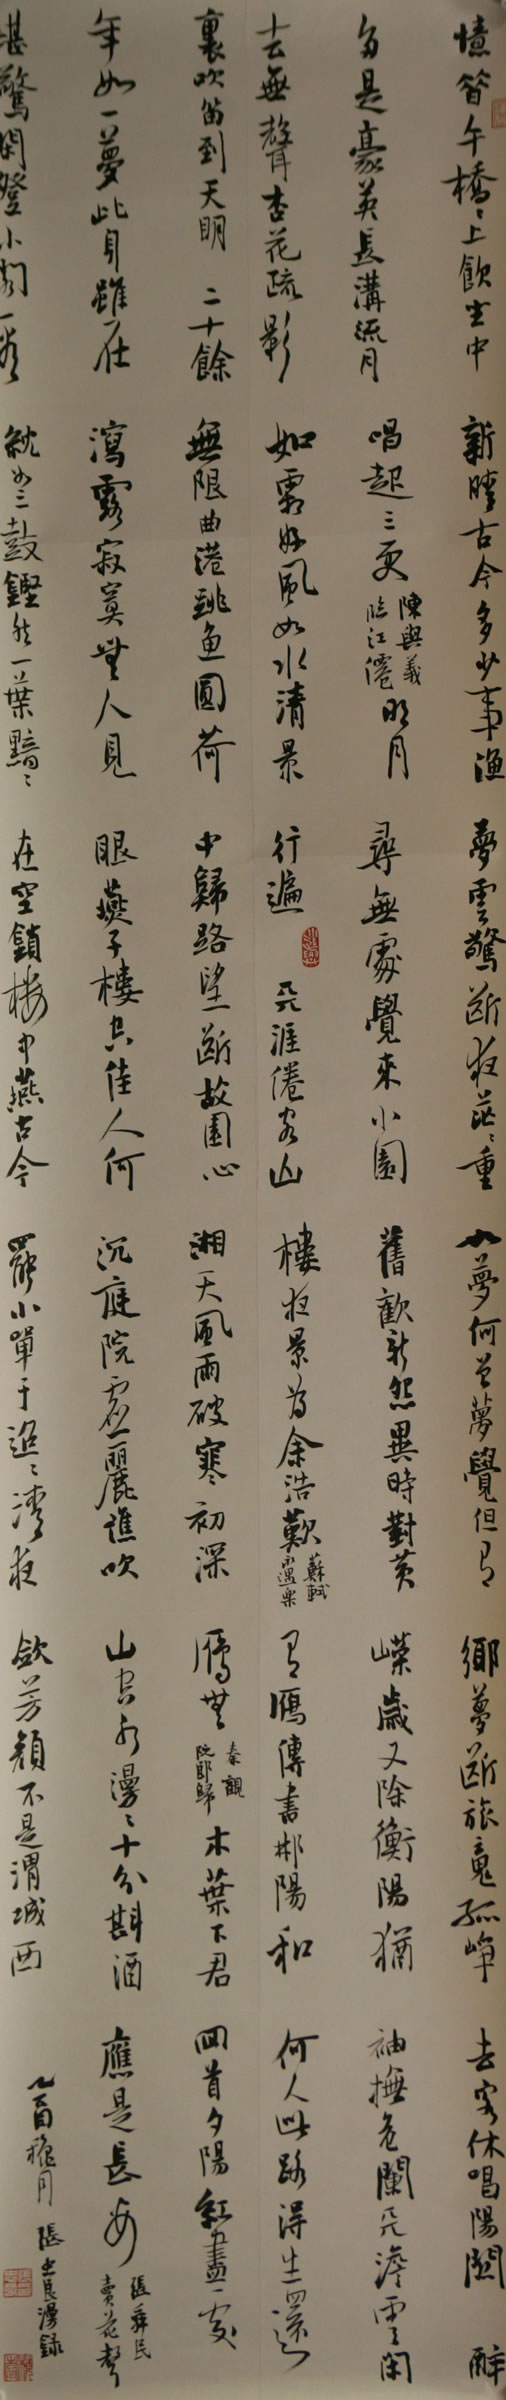 憶昔午橋〻上飲坐中
多是豪英長溝流月
去無聲杏花疏影
裏吹笛到天明 二十餘
年如一夢此身雖在
堪驚閑登小閣看
新晴古今多少事漁
唱起三更 陳與義 臨江僊 明月
如霜好風如水清景
無限曲港跳魚圓荷
瀉露寂寞無人見
紞如三鼓鏗然一葉黯〻
夢雲驚斷夜茫〻重
尋無處覺來小園
行遍 天涯倦客山
中歸路望斷故園心
眼燕子樓空佳人何
在空鎖樓中燕古今
如夢何曾夢覺但有
舊歡新怨異時對黃
樓夜景為余浩歎 蘇軾 永遇樂
湘天風雨破寒初深
沉庭院虛麗譙吹
罷小單于迢〻清夜
鄉夢斷旅魂孤崢
嶸歲又除衡陽猶
有雁傳書郴陽和
雁無 秦觀 阮郎歸 木葉下君
山空水漫〻十分斟酒
歛芳顏不是渭城西
去客休唱陽關 醉
袖撫危闌天淡雲閑
何人此路得生還
回首夕陽紅盡處
應是長安 張舜民 賣花聲
乙酉穐月 張忠良漫録